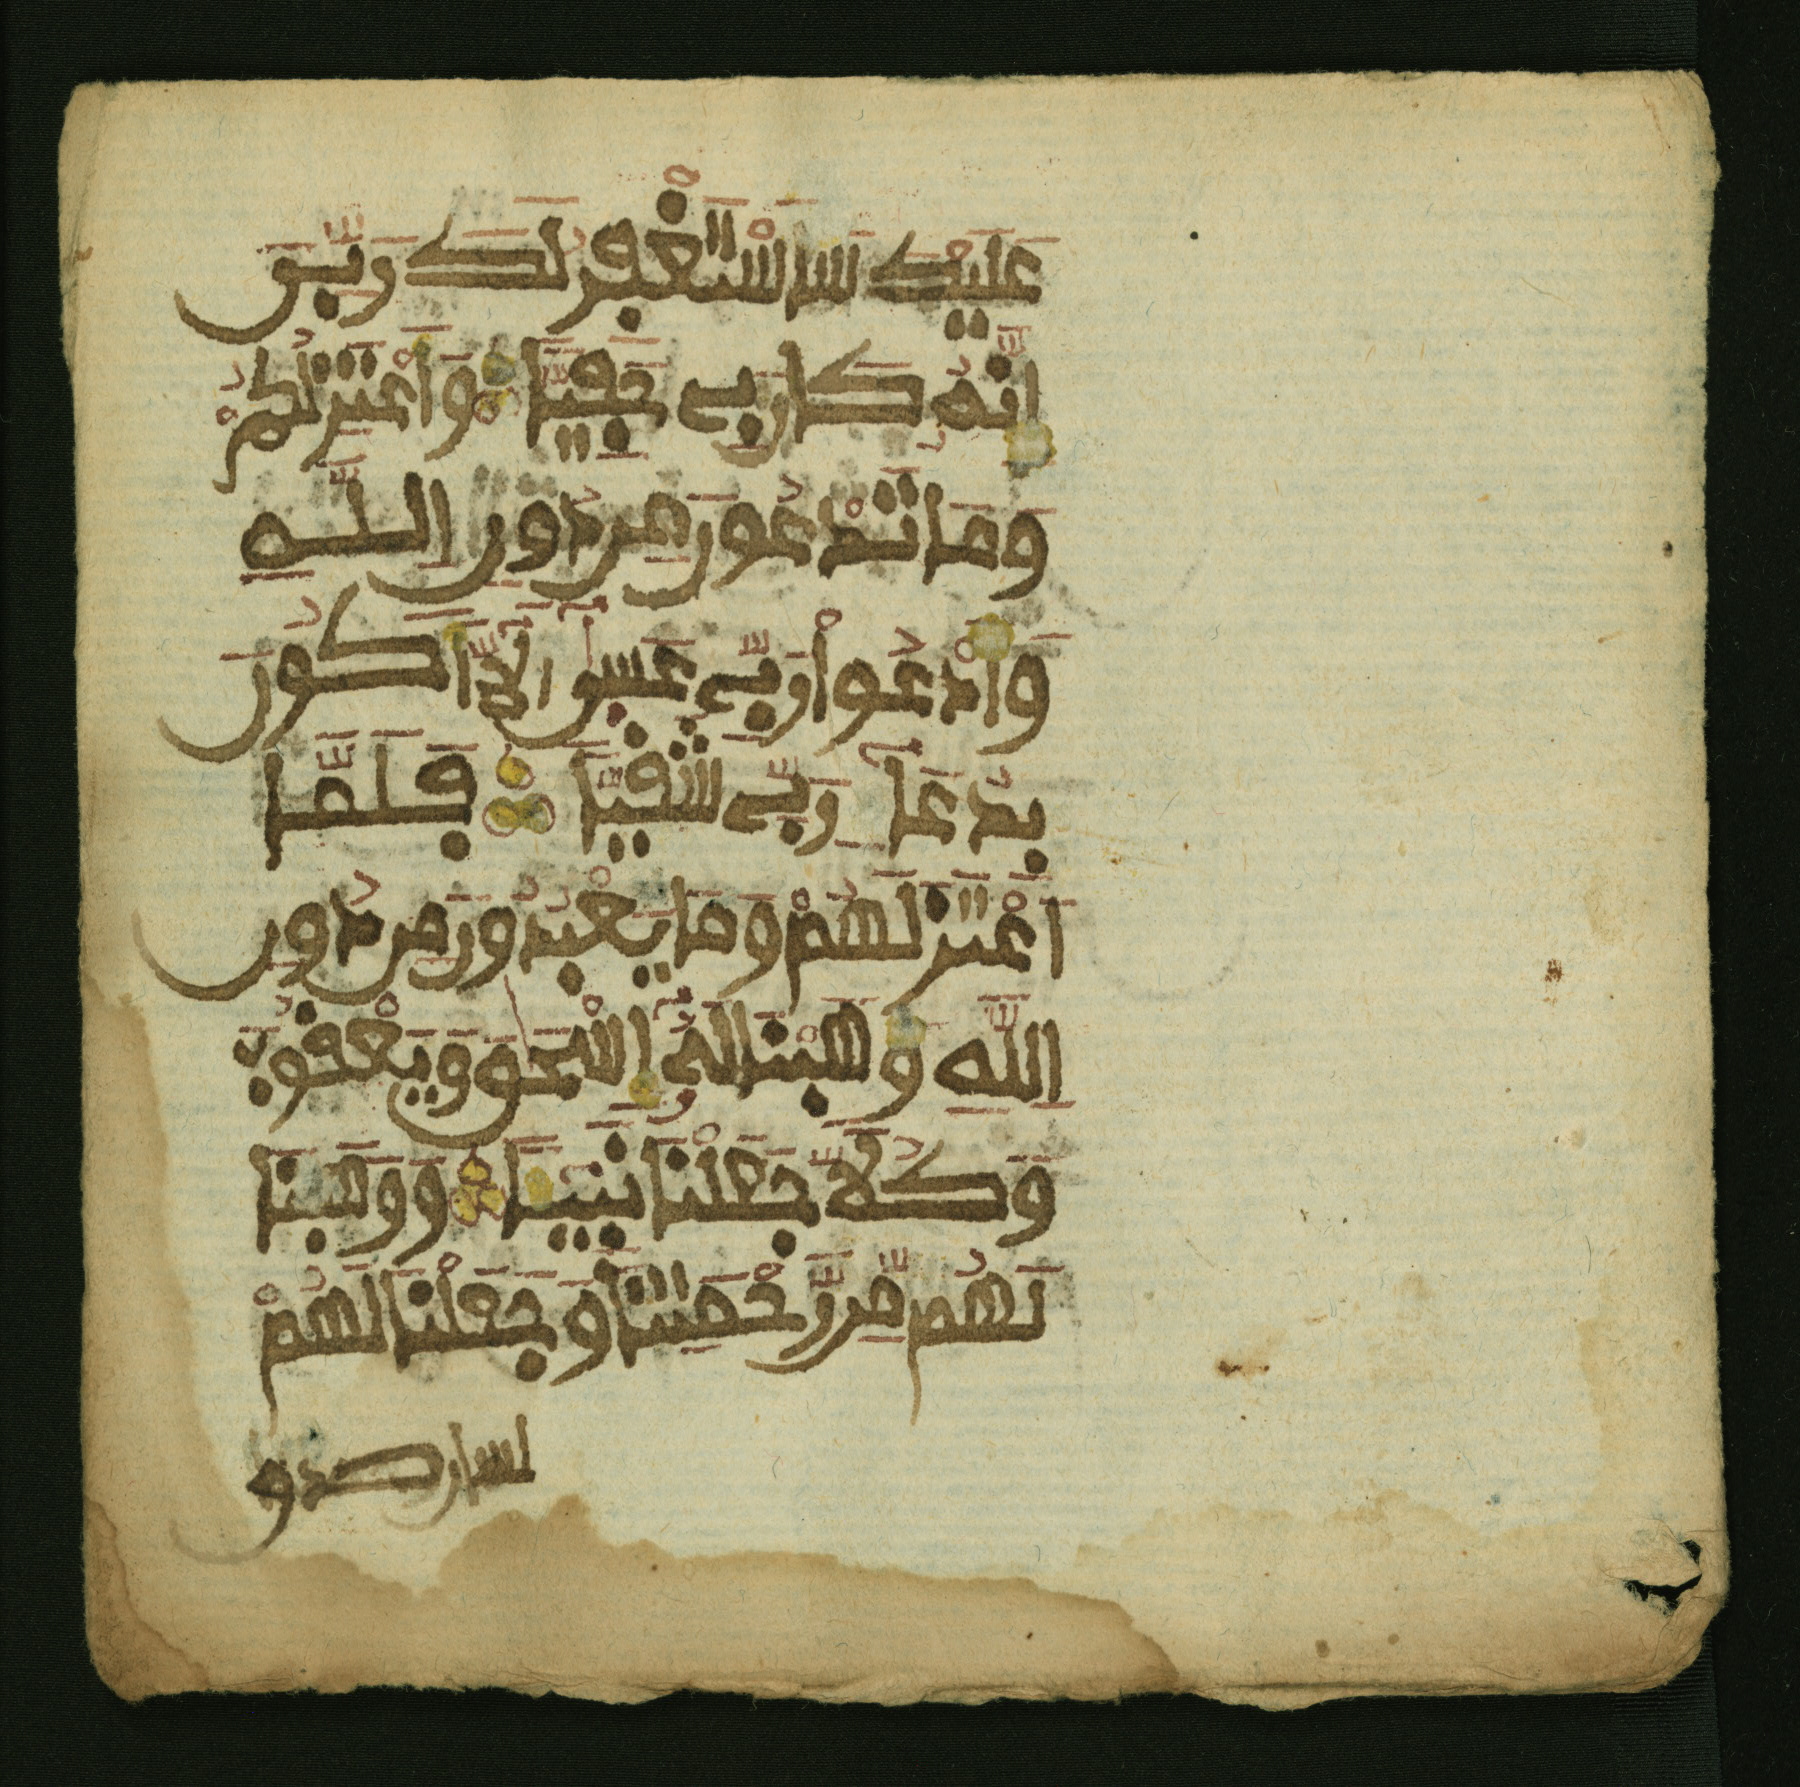 عَلَيْكَ سَاَسْتَغْفِرُ لَكَ رَبِّي
إِنَّهُ كَانَ بِي حَفِيًّا وَأَعْتَزِلُكُمْ
وَمَا تَدْعُونَ مِن دُونِ اِللَّهِ
وَأَدْعُواْ رَبِّي عَسَىٰ أَلَّا أَكُونَ
بِدُعَآءِ رَبِّي شَقِيًّا فَلَمَّا
اَعْتَزَلَهُمْ وَمَا يَعْبُدُونَ مِن دُونِ
اِللَّهِ وَهَبْنَا لَهُ إِسْحَٰقَ وَيَعْقُوبَ
وَكُلًّا جَعَلْنَا نَبِيًّا وَوَهَبْنَا
لَهُم مِّن رَّحْمَتِنَا وَجَعَلْنَا لَهُمْ
لسان صدق